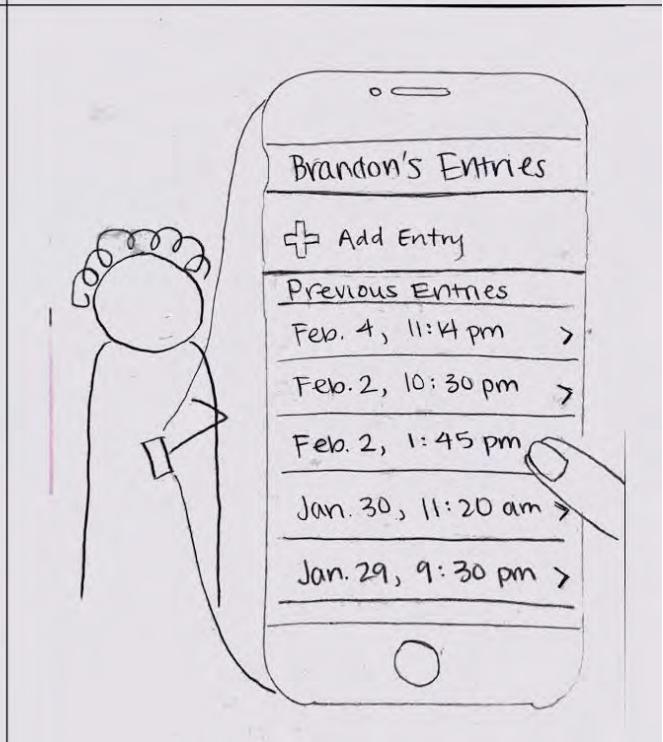 Brandon's Entries
Add Entry
Previous Entries
Feb. 4, 11:14 pm >
Feb. 2, 10:30 pm >
Feb. 2, 1:45 pm
Jan. 30, 11:20 am >
Jan. 29, 9:30 pm >